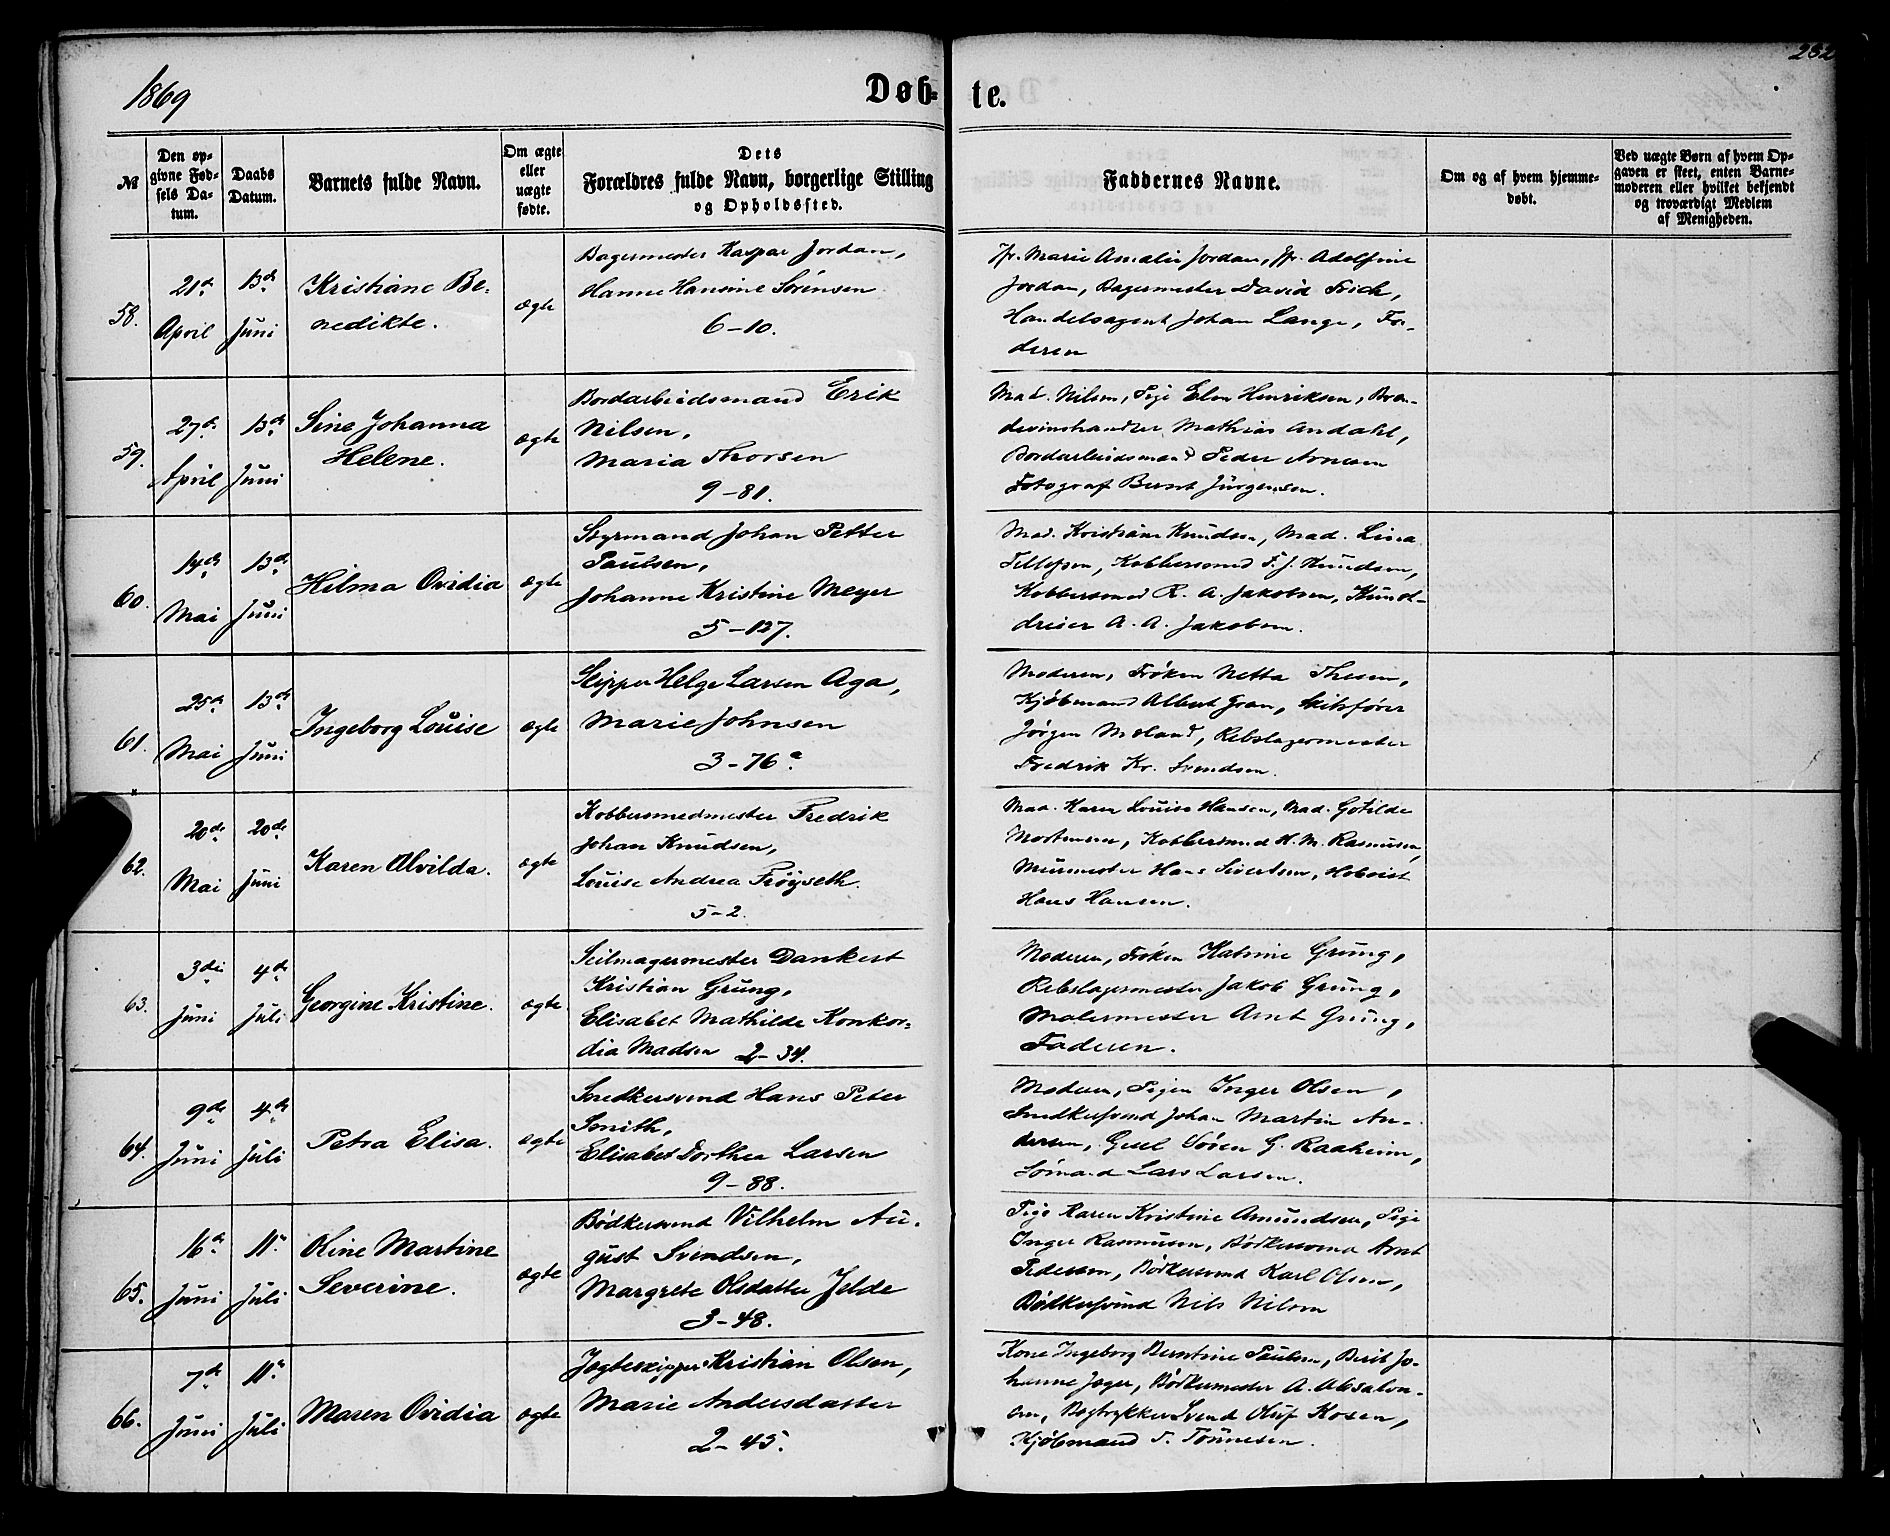 1869
Døb-
te.
232
№
Den op-
givne Fød-
sels Da-
tum.
Daabs
Datum.
Barnets fulde Navn.
Om ægte
eller
uægte
fødte.
Dets
Forældres fulde Navn, borgerlige Stilling
og Opholdssted.
Faddernes Navne.
Om og af hvem hjemme-
døbt.
Ved uægte Børn af hvem Op-
gaven er skeet, enten Barne-
moderen eller hvilket bekjendt
og troværdigt Medlem
af Menigheden.
58.
21de
April
13de
Juni
Kristiane Be-
nedikte.
ægte
Bagermester Kaspar Jordan,
Hanne Hansine Sørensen
6-10.
Jfr. Marie Amalie Jordan, Jfr. Adolfine
Jordan, Bagermester David Frich,
Handelsagent Johan Lange, Fa-
deren
59.
27de
April
13de
Juni
Sine Johanna
Helene.
ægte
Bordarbeidsmand Erik
Nilsen,
Maria Thorsen
9-81.
Mad. Nilsen, Pige Elen Henriksen, Bræn-
devinshandler Mathias Andahl,
Bordarbeidsmand Peder Arnesen
Fotograf Bernt Jürgensen.
60.
14de
Mai
13de
Juni
Hilma Ovidia
ægte
Styrmand Johan Petter
Paulsen,
Johanne Kristine Meyer
5-127.
Mad. Kristiane Knudsen, Mad. Lina
Tellefsen, Kobbersmed F. J. Knudsen,
Kobbersmed R. A. Jakobsen, Kunst-
dreier A. A. Jakobsen.
61.
25de
Mai
13de
Juni
Ingeborg Louise
ægte
Skipper Helge Larsen Aga,
Marie Johnsen
3-76a.
Moderen, Frøken Netta Thesen,
Kjøbmand Albert Gran, Skibsfører
Jørgen Meland, Rebslagermester
Fredrik Kr. Svendsen.
62.
20de
Mai
20de
Juni
Karen Alvilda.
ægte
Kobbersmedmester Fredrik
Johan Knudsen,
Louise Andrea Frøyseth.
5-2.
Mad. Karen Louise Hansen, Mad. Gotilde
Mortensen, Kobbersmed H. M. Rasmusen,
Murmester Hans Sivertsen,
Hans Hansen.
63.
3die
Juni
4de
Juli
Georgine Kristine.
ægte
Seilmagermester Dankert
Kristian Grung,
Elisabet Mathilde Konkor-
dia Madsen 2-34.
Moderen, Frøken Katrine Grung,
Rebslagermester Jakob Grung,
Malermester Arnt Grung,
Faderen.
64.
9de
Juni
4de
Juli
Petra Elisa.
ægte
Snedkersvend Hans Peter
Smith,
Elisabet Dorthea Larsen
9-88.
Moderen, Pigen Inger Olsen,
Snedkersvend Johan Martin An-
dersen, Søren G. Raaheim,
Sømand Lars Larsen.
65.
16de
Juni
11te
Juli
Oline Martine
Severine.
ægte
Bødkersvend Vilhelm Au-
gust Svendsen,
Margrete Olsdatter Jelde
3-48.
Pige Karen Kristine Amundsen, Pige
Inger Rasmusen, Bødkersvend Arnt
Pedersen, Bødkersvend Karl Olsen,
Bødkersvend Nils Nilsen
66.
7de
Juni
11te
Juli
Maren Ovidia
ægte
Jægteskipper Kristian Olsen,
Marie Andersdatter
2-45.
Kone Ingeborg Berntine Paulsen, Berit Jo-
hanne Jæger, Bødkermester A. Absalon-
sen, Bogtrykker Svend Oluf Rosen,
Kjøbmand T. Tönnesen.